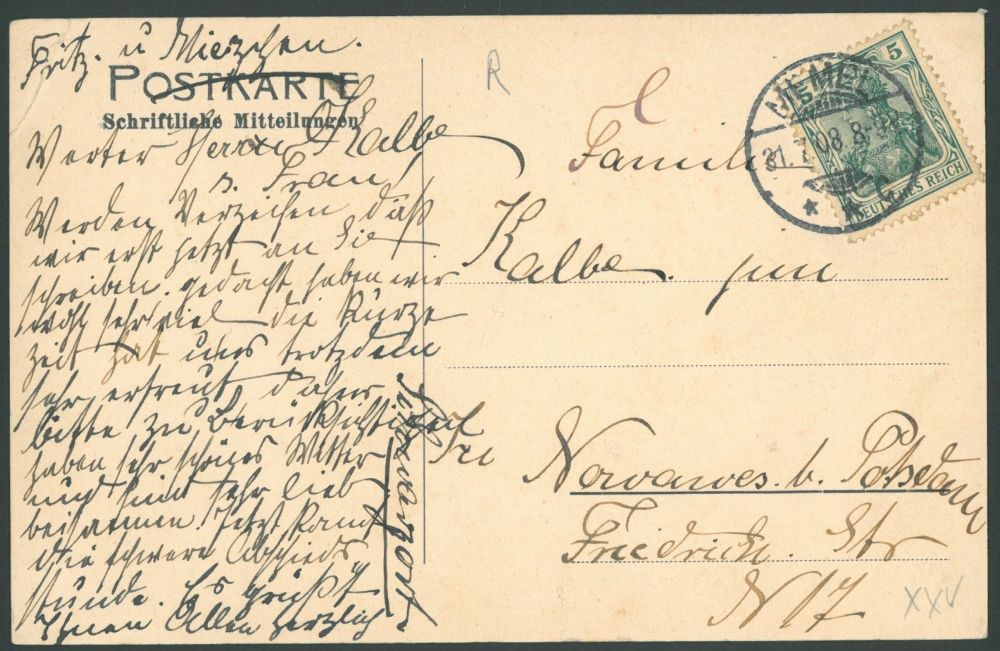 Fritz. u Miezchen.
POSTKARTE
Schriftliche Mitteilungen
Werter Herrn Kalbe
u. Frau!
Werden Verzeihen, daß
wir erst jetzt an Sie
schreiben. gedacht haben wir
wohl sehr viel die Kurze
Zeit hat uns trotzdem
sehr erfreut, daher
bitte zu Berücksichtigen
haben sehr schönes Wetter
und sind sehr lieb
beisammen. Jetzt kommt
die schwere Abschieds
stunde. Es grüßt
Ihnen Allen herzlich
R
MEMEL
31.7.08. 8-9
5
DEUTSCHES REICH
Familie
Kalbe. jun
In
Nowawes. b. Potsdam
Friedrich. Str
N 17
XXV